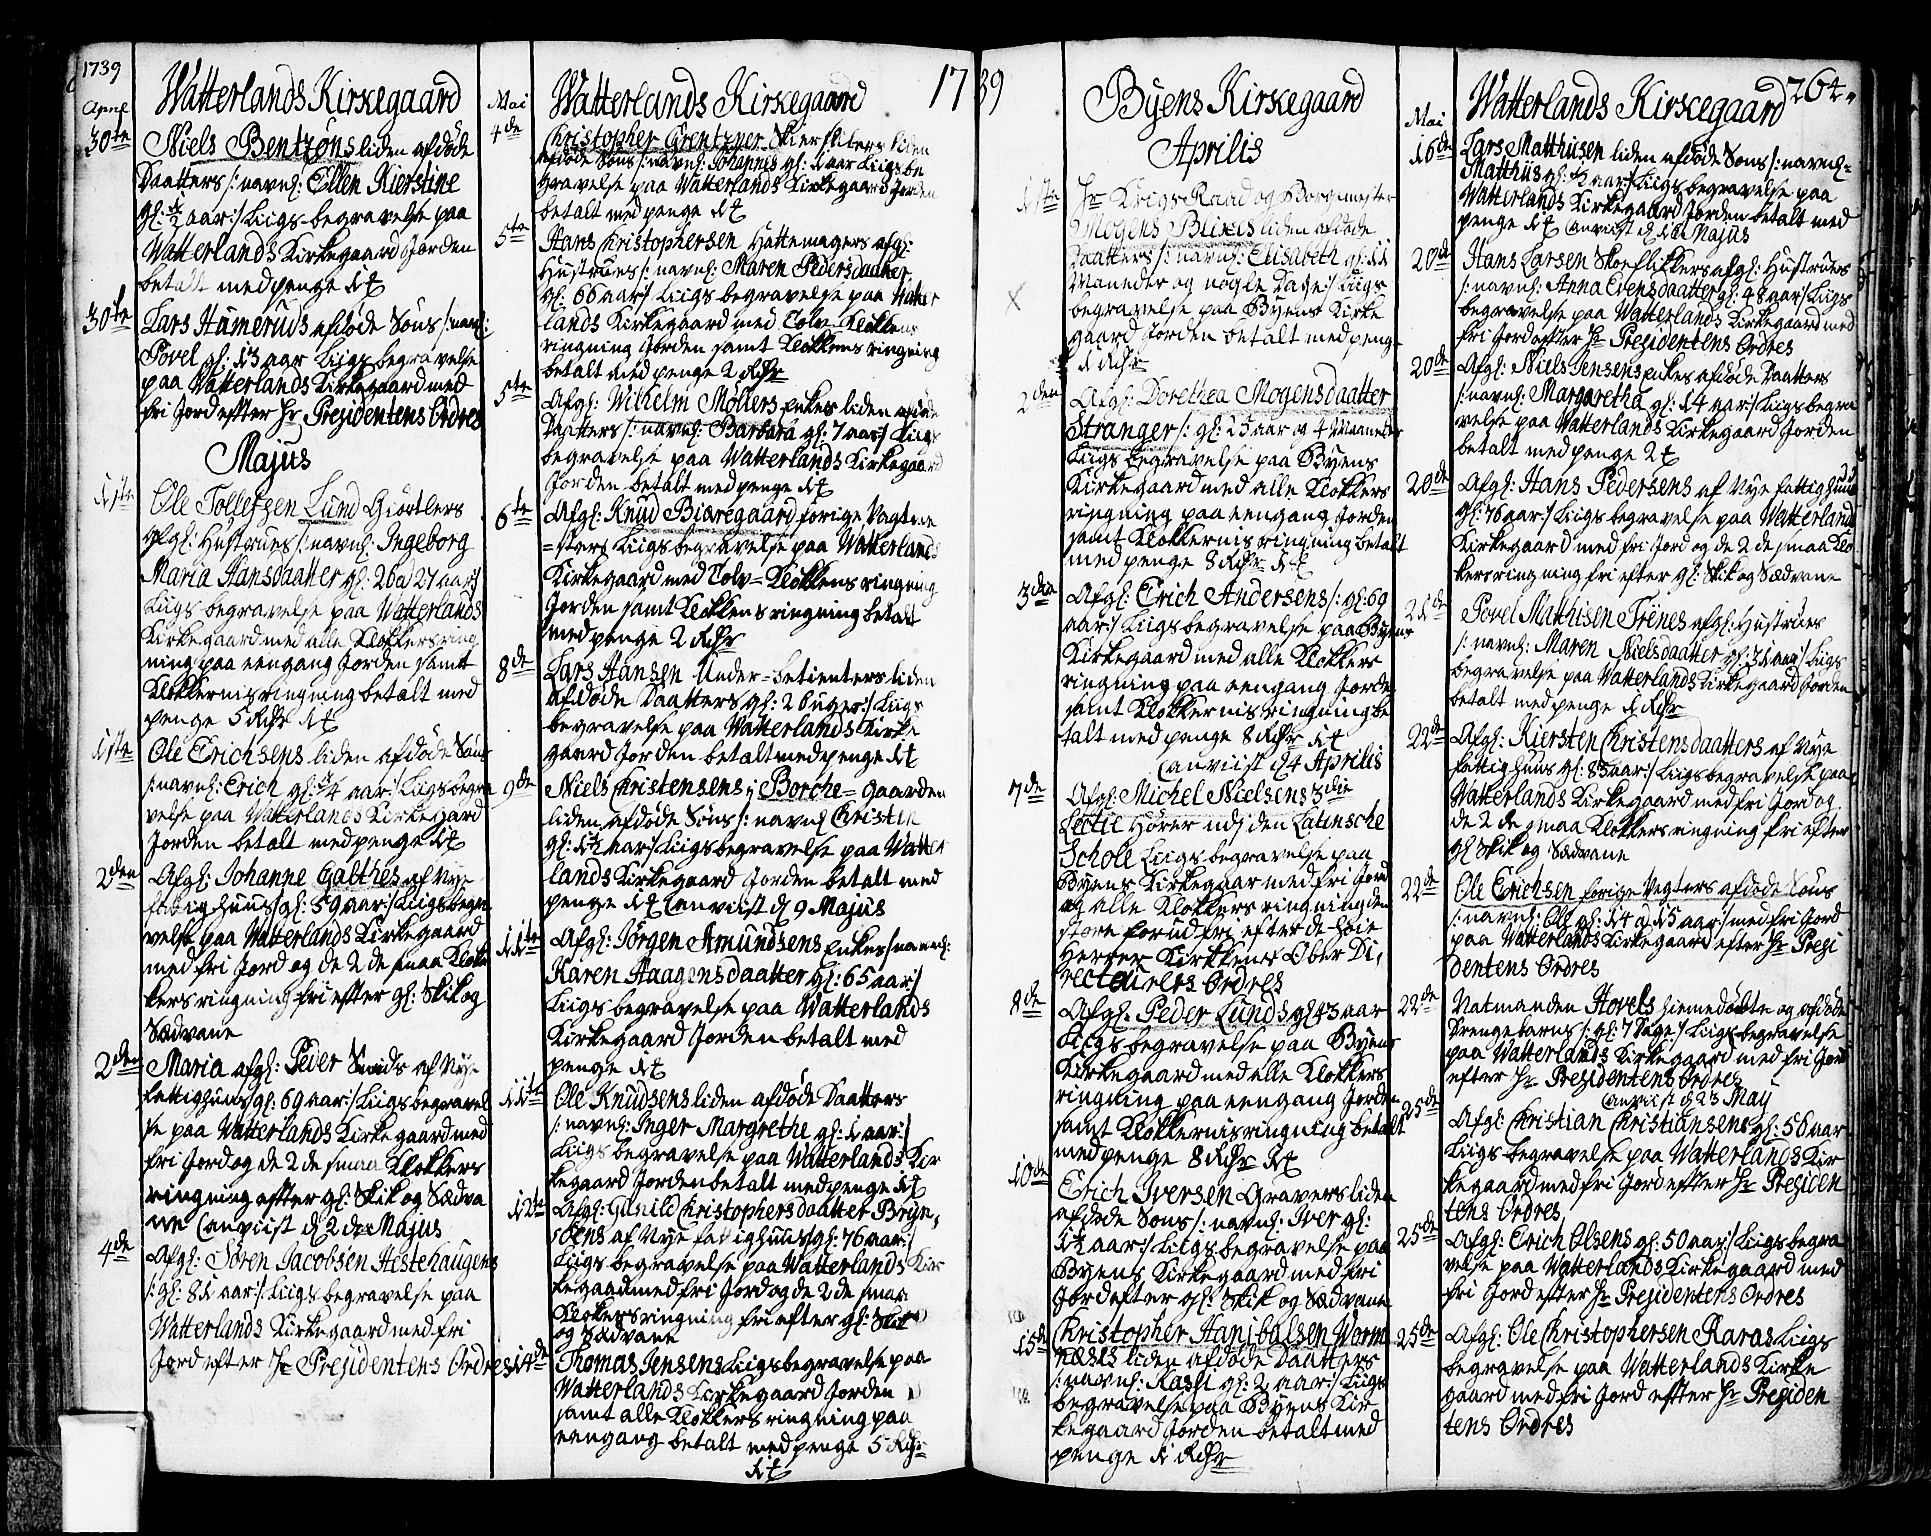 1739
Watterlands Kirkegaard
April
30te
Niels Bentzøns liden afdøde
Daatters /: navnl: Ellen Kierstine
gl: ½ aar :/ Liigs-begravelse paa
Watterlands Kirkegaard Jorden
betalt med penge
30te
Lars Hameruds afdøde Søns /: navnl:
Povel gl: aar Liigs begravelse
paa Watterlands Kirkegaard med
fri Jord efter Hr Presidentens Ordres
Majus
1ste
Ole Tollefsen Lund Giørtlers
afgl: Hustrues /: navnl: Ingeborg
Maria Hansdaatter gl: 26 a 27 aar :/
Liigs begravelse paa Watterlands
Kirkegaard med alle Klokkers ring
ning paa eengang Jorden samt
Klokkernis ringning betalt med
penge 5 Rdr
1ste
Ole Erichsens liden afdøde Søns
/: navnl: Erich gl: ¾ aar :/ Liigs begra
velse paa Watterlands Kirkegard
Jorden betalt med penge
2den
Afgl: Johanne Galthes af Nye
fattighuus gl: 59 aar :/ Liigs begra
velse paa Watterlands Kirkegaard
med fri Jord og de 2 de smaa Klok
kers ringning fri efter gl: Skik og
Sædvane
2den
Maria afgl: Peder Smids af Nye
fattighuus gl: 69 aar :/ Liigs begravel
se paa Watterlands Kirkegaard med
fri Jord og de 2 de smaa Klokkers
ringning efter gl: Skik og Sædva
ne Canviist d 2de Majus
4de
Afgl: Søren Jacobsen Hestehaugens
/: gl: 81 aar :/ Liigs begravelse paa
Watterlands Kirkegaard med fri
Jord efter Hr Presidentens Ordres
Mai
Watterlands Kirkegaard
17
4de
Christopher Grentzner Skierslibers liden
afdøde Søns /: navnl: Johannes gl: 1 aar Liigs be
gravelse paa Watterlands Kirkegaard Jorden
betalt med penge
5te
Hans Christophersen Hattemagers afgl:
Hustrues /: navnl: Maren Pedersdaatter
gl: 66 aar :/ Liigs begravelse paa Watter
lands Kirkegaard med Tolv-Klokkens
ringning Jorden samt Klokkens ringning
betalt med penge 2 Rdr
5te
Afgl: Wilhelm Møllers Enkes liden afdøde
Daatters /: navnl: Barbara gl: 7 aar :/ Liigs
begravelse paa Watterlands Kirkegaard
Jorden betalt med penge
6te
Afgl: Knud Biøregaard forige Vagtme
=sters Liigs begravelse paa Watterlands
Kirkegaard med Tolv=Klokkens ringning
Jorden samt Klokkens ringning betalt
med penge 2 Rdr
8de
Lars Hansen Under=betienters liden
afdøde Daatters gl: 2 Uger :/ Liigs
begravelse paa Watterlands Kirke
gaard Jorden betalt med penge
9de
Niels Christensens i Borche=gaarden
liden afdøde Søns /: navnl Christen
gl: 1½ aar :/ Liigs begravelse paa Watter
lands Kirkegaard Jorden betalt med
penge Canviist d 9 Majus
11te
Afgl: Jørgen Amundsens Enkes /: navnl:
Karen Haagensdaatter gl: 65 aar :/
Liigs begravelse paa Watterlands
Kirkegaard Jorden betalt med
penge
11te
Ole Knudsens liden afdøde Daatters
/: navnl: Inger Margrethe gl: 1 aar :/
Liigs begravelse paa Watterlands Kir
kegaard Jorden betalt med penge
12te
Afgl: Gunild Christophersdaatter Bryn,
ildens af Nye fattighuus gl: 76 aar :/
Liigs begravelse paa Watterlands Kir
kegaard med fri Jord og de 2 de smaa
Klokkers ringning fri efter gl: Skik
og Sædvane
14de
Thomas Jensens Liigs begravelse paa
Watterlands Kirkegaard Jorden
samt alle Klokkers ringning paa
eengang betalt med penge 5 Rdr
39
Byens Kirkegaard
Aprilis
1ste
Hr Krigs Raad og Borgemester
Mogens Blixes liden afdøde
Daatters /: navnl: Elisabeth gl: 11
Maneder og nogle Dage :/ Liigs
X
begravelse paa Byens Kirke
gaard Jorden betalt med penge
1 Rdr
2den
Afgl: Dorethea Mogensdaatter
Stranger /: gl: aar og 4 Maaneder
Liigs begravelse paa Byens
Kirkegaard med alle Klokkers
ringning paa eengang Jorden
samt Klokkernis ringning betalt
med penge 8 Rdr
3den
Afgl: Erich Andersens /: gl: 69
aar :/ Liigs begravelse paa Byens
Kirkegaard med alle Klokkers
ringning paa eengang Jorden
samt Klokkernis ringning be
talt med penge 8 Rdr
Canviist d 4 Aprilis
7de
Afgl: Michel Nielsens 3die
Lectie Hører udj den Latinsche
Schole Liigs begravelse paa
Byens Kirkegaar med fri Jord
og alle Klokkers ringning den
store forud fri efter de høie
Herrer Kirkkens Ober Di,
recteurers Ordres
8de
Afgl: Peder Lunds gl 43 aar
Liigs begravelse paa Byens
Kirkegaard med alle Klokkers
ringning paa eengang Jorden
samt Klokkernis ringning betalt
med penge 8 Rdr
10de
Erich Iversen Gravers liden
afdøde Søns /: navnl: Iver gl:
1½ aar :/ Liigs begravelse paa
Byens Kirkegaard med fri
Jord efter gl: Skik og Sædvane
15de
Christopher Hanibalsen Worm
næses liden afdøde Daatters
/: navnl: Kassi gl: 2 aar :/ Liigs
begravelse paa Byens Kir
kegaard Jorden betalt med
penge 1 Rdr
Mai
Watterlands Kirkegaard
264.
16de
Lars Matthiisen liden afdøde Søns /: navnl=
Matthiis gl: aar :/ Liigs begravelse paa
Watterlands Kirkegaard Jorden betalt med
penge Canviist d Majus
20de
Hans Larsen Skoeflikkers afgl: Hustrues
/: navnl: Anna Evensdaatter gl: 48 aar :/ Liigs
begravelse paa Watterlands Kirkegaard med
fri Jord efter Hr Presidentens Ordres
20de
Afgl: Niels Jensens Enkes afdøde Daatters
/: navnl: Margaretha gl: 14 aar :/ Liigs begra
velse paa Watterlands Kirkegaard Jorden
betalt med penge
20de
Afgl: Hans Pedersens af Nye fattighuus
gl: 76 aar :/ Liigs begravelse paa Watterlands
Kirkegaard med fri Jord og de 2 de smaa Klo
kers ringning fri efter gl: Skik og Sædvane
21de
Povel Mathisen Trenes afgl: Hustrues
/: navnl: Maren Nielsdaatter gl: 31 aar :/ Liigs
begravelse paa Watterlands Kirkegaard Jorden
betalt med penge 1 Rdr
22de
Afgl: Kiersten Christensdaatters af Nye
fattighuus gl: aar :/ Liigs begravelse paa
Watterlands Kirkegaard med fri Jord og
de 2 de smaa Klokkers ringning fri efter
gl Skik og Sædvane
22de
Ole Erichsen forige Vegters afdøde Søns
/: navnl: Ole gl: 14 a 15 aar :/ med fri Jord
paa Watterlands Kirkegaard efter Hr Presi
dentens Ordres
22de
Natmanden Hovels hiemedøbte og afdøde
Drengebarns /: gl: 7 Dage :/ Liigs begravelse
paa Watterlands Kirkegaard med fri Jord
efter Hr Presidentens Ordres
Canviist d May
25de
Afgl: Christian Christiansens gl: 56 aar
Liigs begravelse paa Watterlands Kir
kegaard med fri Jord efter Hr Presiden
tens Ordres
25de
Afgl: Erich Olsens gl: 50 aar :/ Liigs begra
velse paa Watterlands Kirkegaard med
fri Jord efter Hr Presidentens Ordres
25de
Afgl: Ole Christophersen Raras Liigs
begravelse paa Watterlands Kirke
gaard med fri Jord efter Hr Presiden
tens Ordres